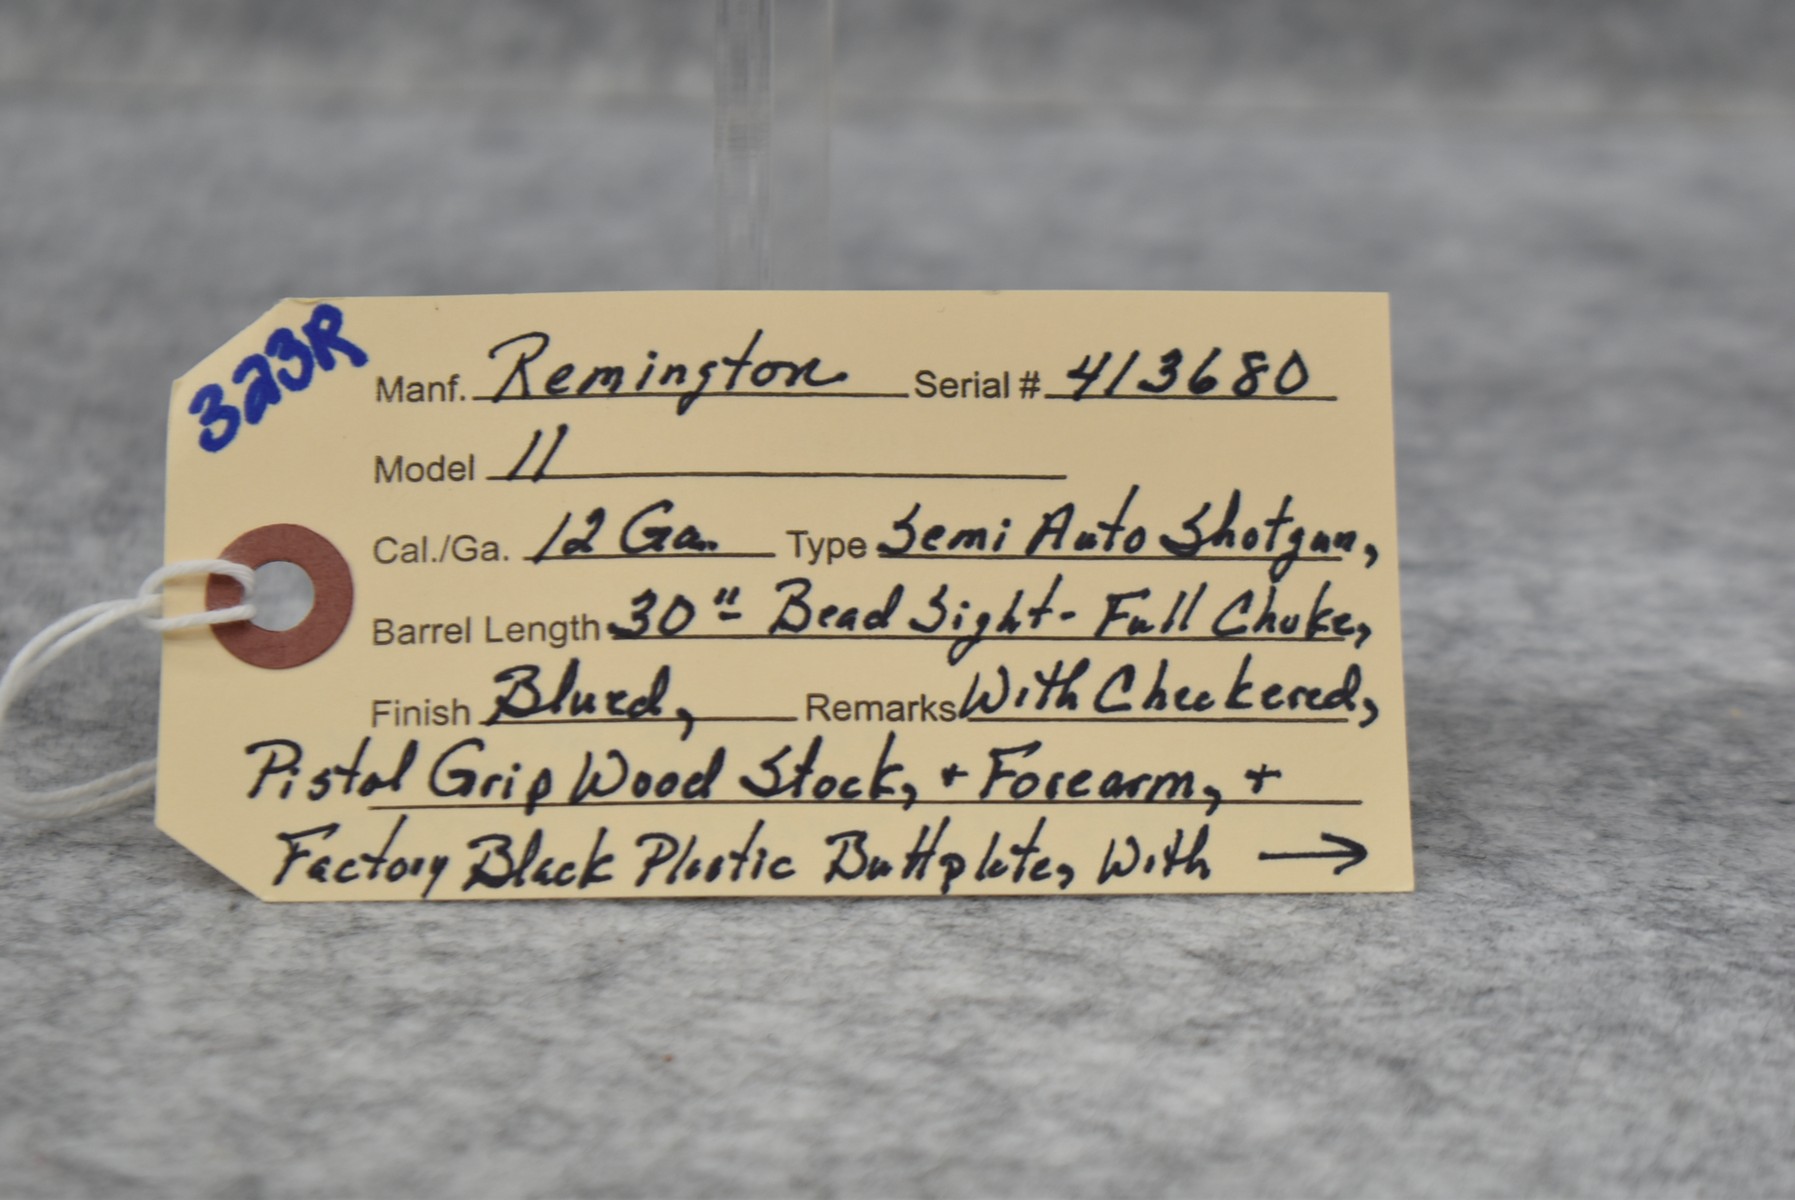 323R
Manf. Remington Serial # 413680
Model 11
Cal./Ga. 12 Ga. Type Semi Auto Shotgun,
Barrel Length 30" - Bead Sight - Full Choke,
Finish Blued, Remarks With Checkered,
Pistol Grip Wood Stock, + Forearm, +
Factory Black Plastic Buttplate, With →